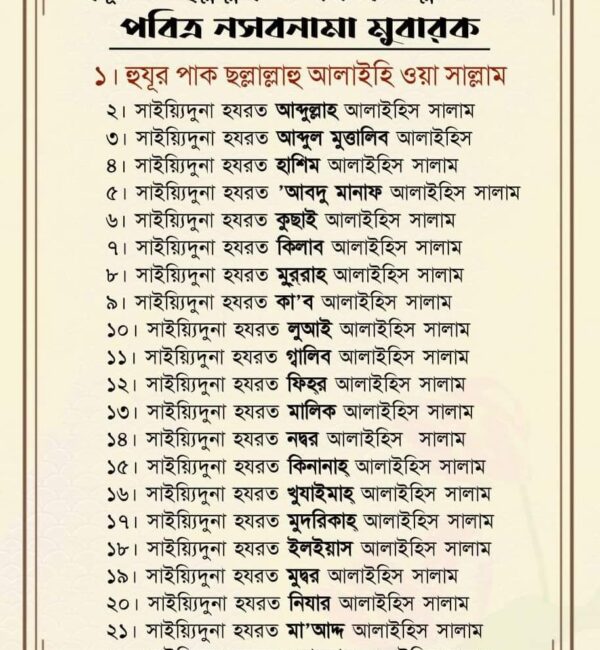 পবিত্র নসবনামা মুবারক
১। হুযূর পাক ছল্লাল্লাহু আলাইহি ওয়া সাল্লাম
২। সাইয়্যিদুনা হযরত আব্দুল্লাহ আলাইহিস সালাম
৩। সাইয়্যিদুনা হযরত আব্দুল মুত্তালিব আলাইহিস
৪। সাইয়্যিদুনা হযরত হাশিম আলাইহিস সালাম
৫। সাইয়্যিদুনা হযরত ’আবদু মানাফ আলাইহিস সালাম
৬। সাইয়্যিদুনা হযরত কুছাই আলাইহিস সালাম
৭। সাইয়্যিদুনা হযরত কিলাব আলাইহিস সালাম
৮। সাইয়্যিদুনা হযরত মুররাহ আলাইহিস সালাম
৯। সাইয়্যিদুনা হযরত কা’ব আলাইহিস সালাম
১০। সাইয়্যিদুনা হযরত লুআই আলাইহিস সালাম
১১। সাইয়্যিদুনা হযরত গ্বালিব আলাইহিস সালাম
১২। সাইয়্যিদুনা হযরত ফিহর আলাইহিস সালাম
১৩। সাইয়্যিদুনা হযরত মালিক আলাইহিস সালাম
১৪। সাইয়্যিদুনা হযরত নদ্বর আলাইহিস সালাম
১৫। সাইয়্যিদুনা হযরত কিনানাহ্ আলাইহিস সালাম
১৬। সাইয়্যিদুনা হযরত খুযাইমাহ্ আলাইহিস সালাম
১৭। সাইয়্যিদুনা হযরত মুদরিকাহ্ আলাইহিস সালাম
১৮। সাইয়্যিদুনা হযরত ইলইয়াস আলাইহিস সালাম
১৯। সাইয়্যিদুনা হযরত মুদ্বর আলাইহিস সালাম
২০। সাইয়্যিদুনা হযরত নিযার আলাইহিস সালাম
২১। সাইয়্যিদুনা হযরত মা’আদ্দ আলাইহিস সালাম